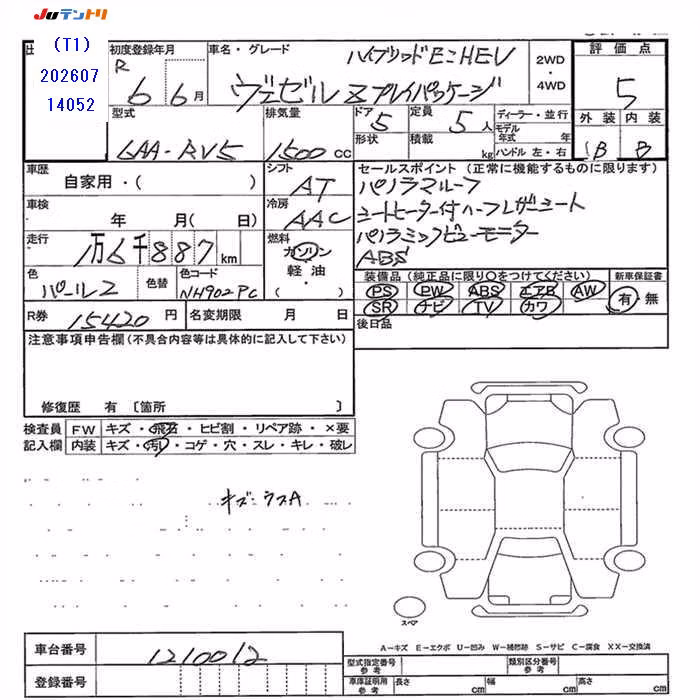 JUテントリ
(T1)
202607
14052
初度登録年月 車名・グレード ハイブリッドE:HEV 2WD・4WD 評価点
R 6 6月 ヴェゼル Zプレイパッケージ 5
型式 排気量 ドア 5 定員 5人 ディーラー・並行 外装 内装
6AA-RV5 1500cc 形状 積載 kg モデル年式 年 ハンドル 左・右 B B
車歴 自家用・( ) シフト AT セールスポイント(正常に機能するものに限ります)
パノラマルーフ
車検 年 月( 日) 冷房 AAC シートヒーター付ハーフレザーシート
走行 万6千887km 燃料 ガソリン 軽油・( ) パノラミックビューモニター
ABS
色 パール2 色替 色コード NH902PC 装備品(純正品に限り○をつけてください) 新車保証書
PS PW ABS エアB AW 有・無
SR ナビ TV カワ
R券 15420円 名変期限 月 日 後日品
注意事項申告欄(不具合内容等は具体的に記入して下さい)
修復歴 有〔箇所 〕
検査員 FW キズ・飛石・ヒビ割・リペア跡・×要
記入欄 内装 キズ・汚れ・コゲ・穴・スレ・キレ・破レ
キズ・ウスA
スペア
A−キズ E−エクボ U−凹み W−補修跡 S−サビ C−腐食 XX−交換済
車台番号 1210012
型式指定番号 参考 類別区分番号 参考
登録番号 車庫証明用 参考 長さ cm 幅 cm 高さ cm